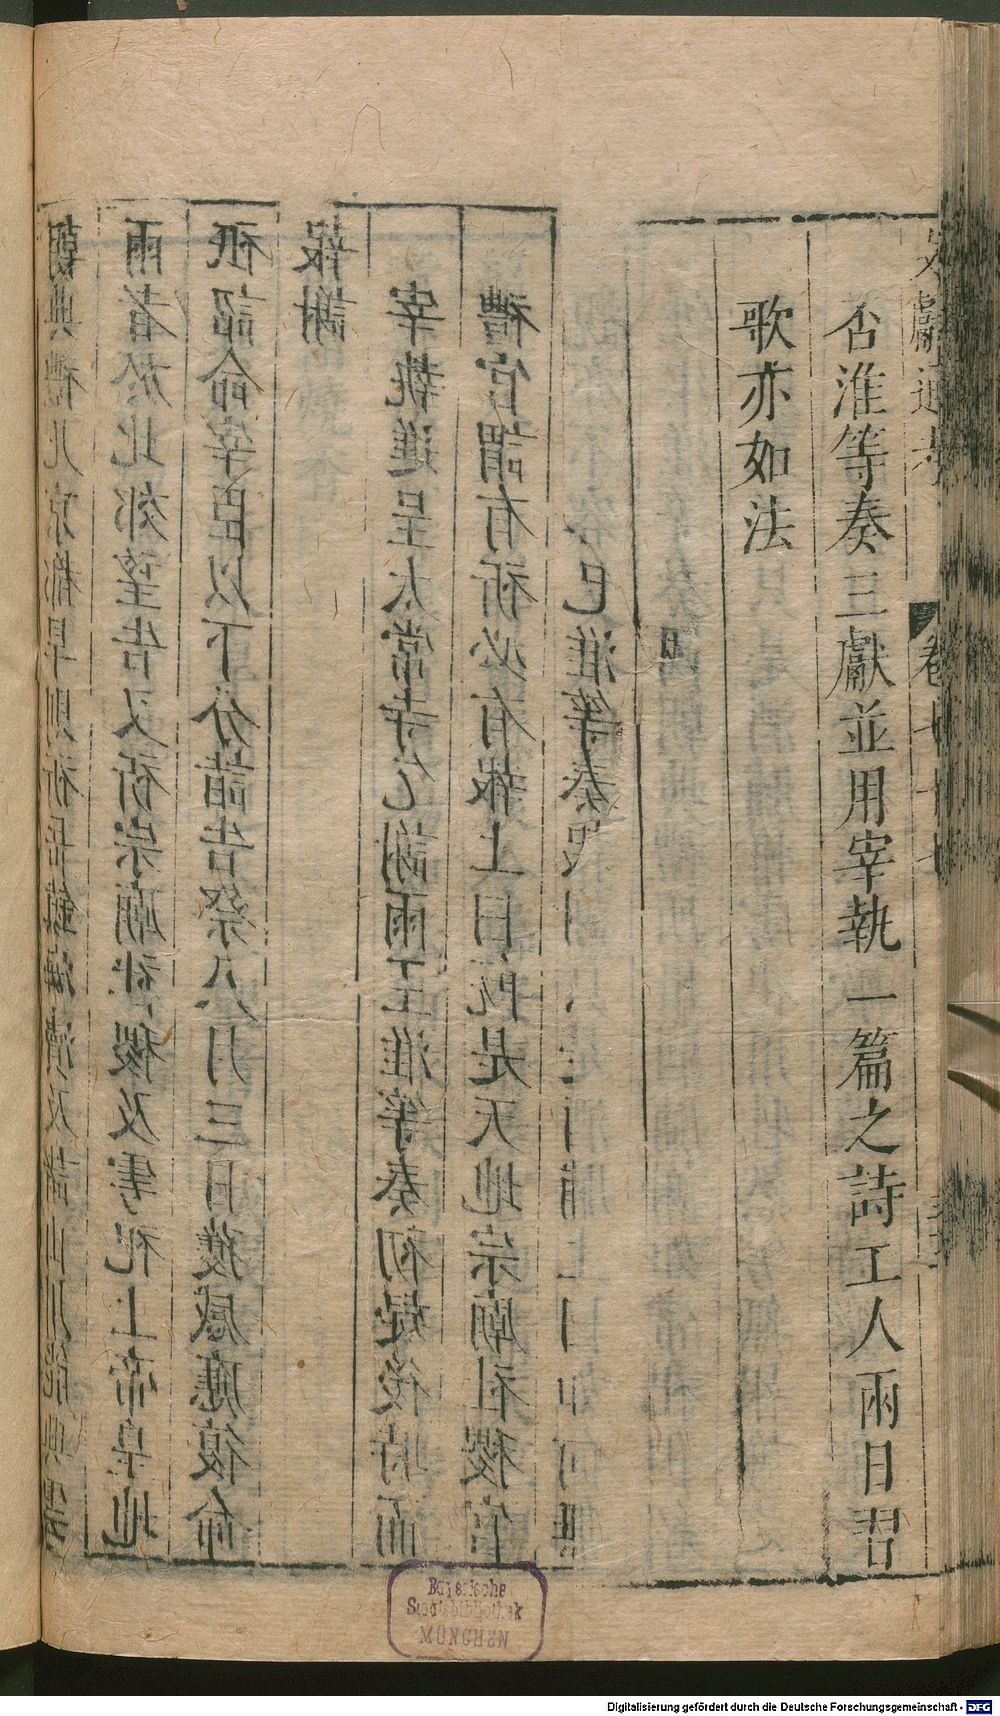 文獻通考 卷七十七
否淮等奏三獻並用宰執一篇之詩工人兩日習
歌亦如法
朝典禮凡京都旱則祈岳鎮海瀆及諸山川能興雲
雨者於北郊望告又祈宗廟社稷及雩祀上帝皇地
祇詔命宰臣以下分詣告祭八月三日獲感應復命
報謝
宰執進呈太常寺乞謝雨王淮等奏初疑後時而
禮官謂有祈必有報上曰既是天地宗廟社稷
不容已淮等奏
Bayerische
Staatsbibliothek
MÜNCHEN
Digitalisierung gefördert durch die Deutsche Forschungsgemeinschaft - DFG